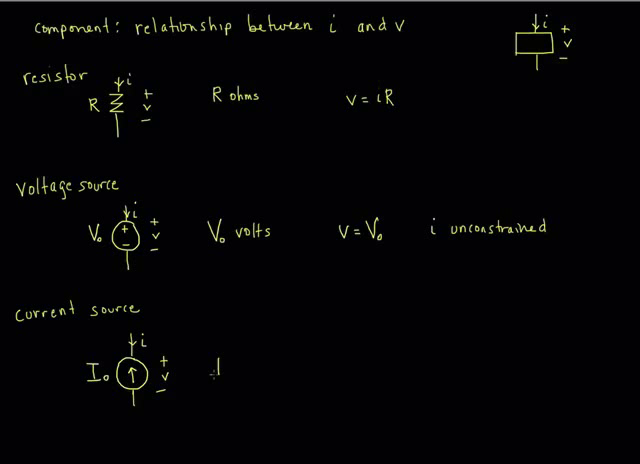 component: relationship between i and v
i
+
v
−
resistor
i
R
+
v
−
R ohms
v = iR
voltage source
i
V₀
+
−
+
v
−
V₀ volts
v = V₀
i unconstrained
current source
i
I₀
+
v
−